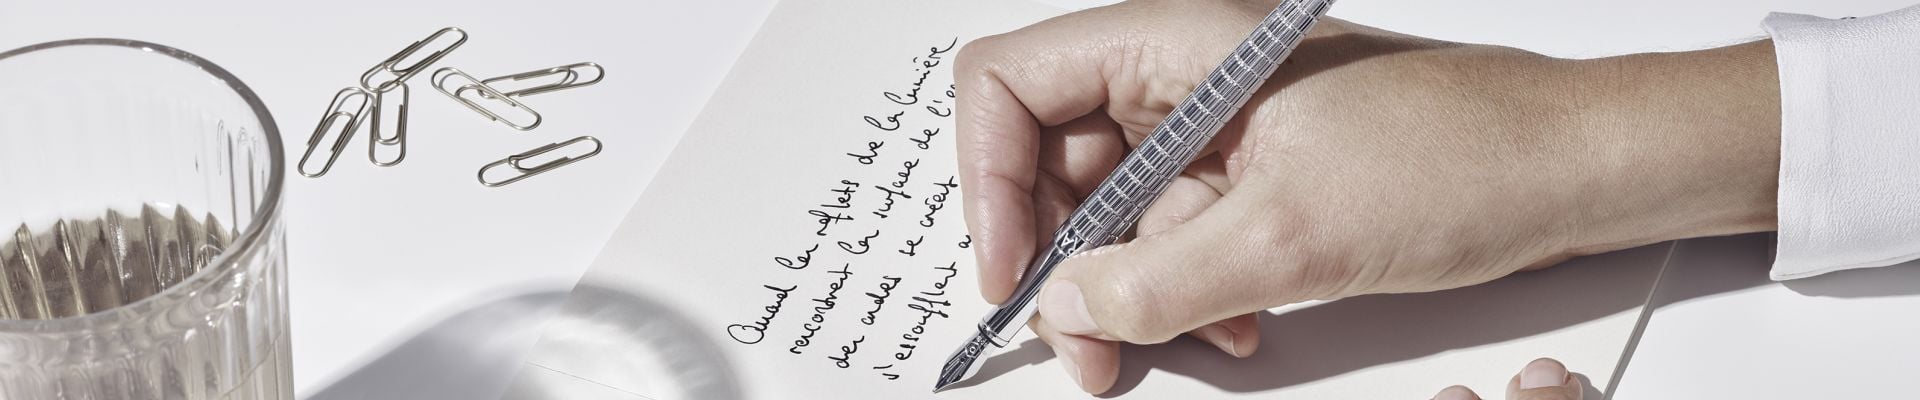 Quand les reflets de la lumière
rencontrent la surface de l'e
des ondes se créent
s'essoufflent a